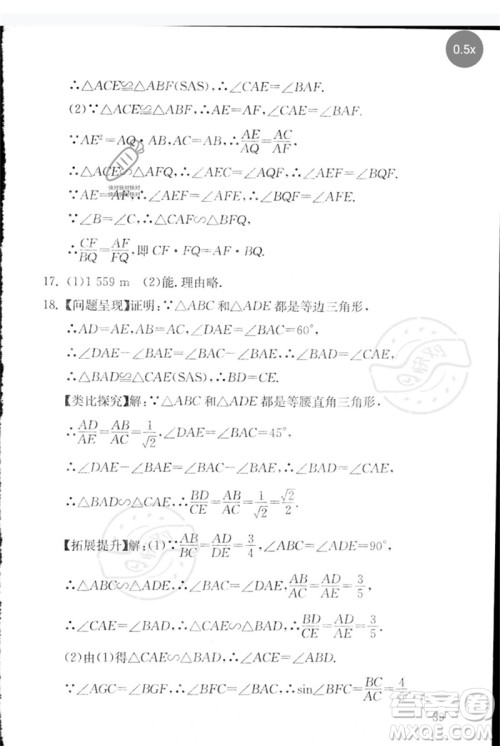 0.5x
∴△ACE≌△ABF(SAS),∴∠CAE=∠BAF.
(2)∵△ACE≌△ABF,∴AE=AF,∠CAE=∠BAF.
∵AE²=AQ·AB,AC=AB,∴AE/AQ=AC/AF.
∴△ACE∽△AFQ,∴∠AEC=∠AQF,∠AEF=∠BQF.
∵AE=AF,∴∠AEF=∠AFE,∴∠BQF=∠AFE.
∵∠B=∠C,∴△CAF∽△BFQ.
∴CF/BQ=AF/FQ,即 CF·FQ=AF·BQ.
17. (1)1 559 m (2)能.理由略.
18.【问题呈现】证明:∵△ABC 和△ADE 都是等边三角形,
∴AD=AE,AB=AC,∠DAE=∠BAC=60°,
∴∠DAE-∠BAE=∠BAC-∠BAE,∴∠BAD=∠CAE.
∴△BAD≌△CAE(SAS),∴BD=CE.
【类比探究】解:∵△ABC 和△ADE 都是等腰直角三角形,
∴AD/AE=AB/AC=1/√2,∠DAE=∠BAC=45°,
∴∠DAE-∠BAE=∠BAC-∠BAE,∴∠BAD=∠CAE.
∴△BAD∽△CAE,∴BD/CE=AB/AC=1/√2=√2/2.
【拓展提升】解:(1)∵AB/BC=AD/DE=3/4,∠ABC=∠ADE=90°,
∴△ABC∽△ADE,∴∠BAC=∠DAE,AB/AC=AD/AE=3/5.
∴∠CAE=∠BAD,∴△CAE∽△BAD,∴BD/CE=AD/AE=3/5.
(2)由(1)得△CAE∽△BAD,∴∠ACE=∠ABD.
∵∠AGC=∠BGF,∴∠BFC=∠BAC,∴sin∠BFC=BC/AC=4/
答案圈
MXQE.COM